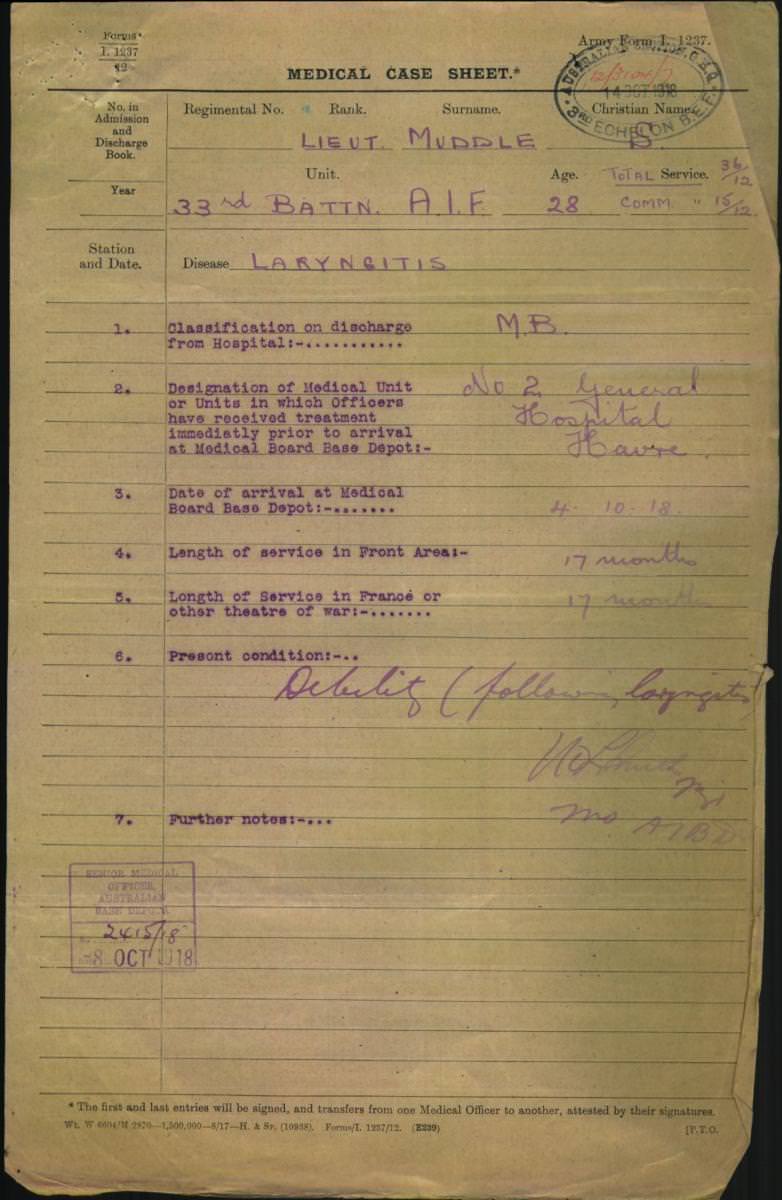 Forms
I. 1237
12
Army Form I. 1237.
MEDICAL CASE SHEET.*
AUSTRALIAN SECTION, G.H.Q.
14 OCT 1918
3RD ECHELON B.E.F.
No. in
Admission
and
Discharge
Book.
Regimental No. Rank. Surname. Christian Name.
LIEUT. MUDDLE B
Year
Unit. Age. TOTAL Service. 36/12
33rd BATTN. A.I.F. 28 COMM. " 15/12
Station
and Date.
Disease LARYNGITIS
1. Classification on discharge M.B.
from Hospital:-...........
2. Designation of Medical Unit No 2 General
or Units in which Officers Hospital
have received treatment
immediatly prior to arrival Havre.
at Medical Board Base Depot:-
3. Date of arrival at Medical
Board Base Depot:-....... 4-10-18.
4. Length of service in Front Area:- 17 months
5. Longth of Service in France or 17 months
other theatre of war:-.......
6. Present condition:-..
Debility (following laryngitis)
Mo AIBD
7. Further notes:-...
SENIOR MEDICAL
OFFICER,
AUSTRALIAN
BASE DEPOTS
2415/18
8 OCT 1918
* The first and last entries will be signed, and transfers from one Medical Officer to another, attested by their signatures.
Wt. W 6604/M 2870—1,500,000—8/17—H. & Sp. (10938). Forms/I. 1237/12. (E239)
[P.T.O.